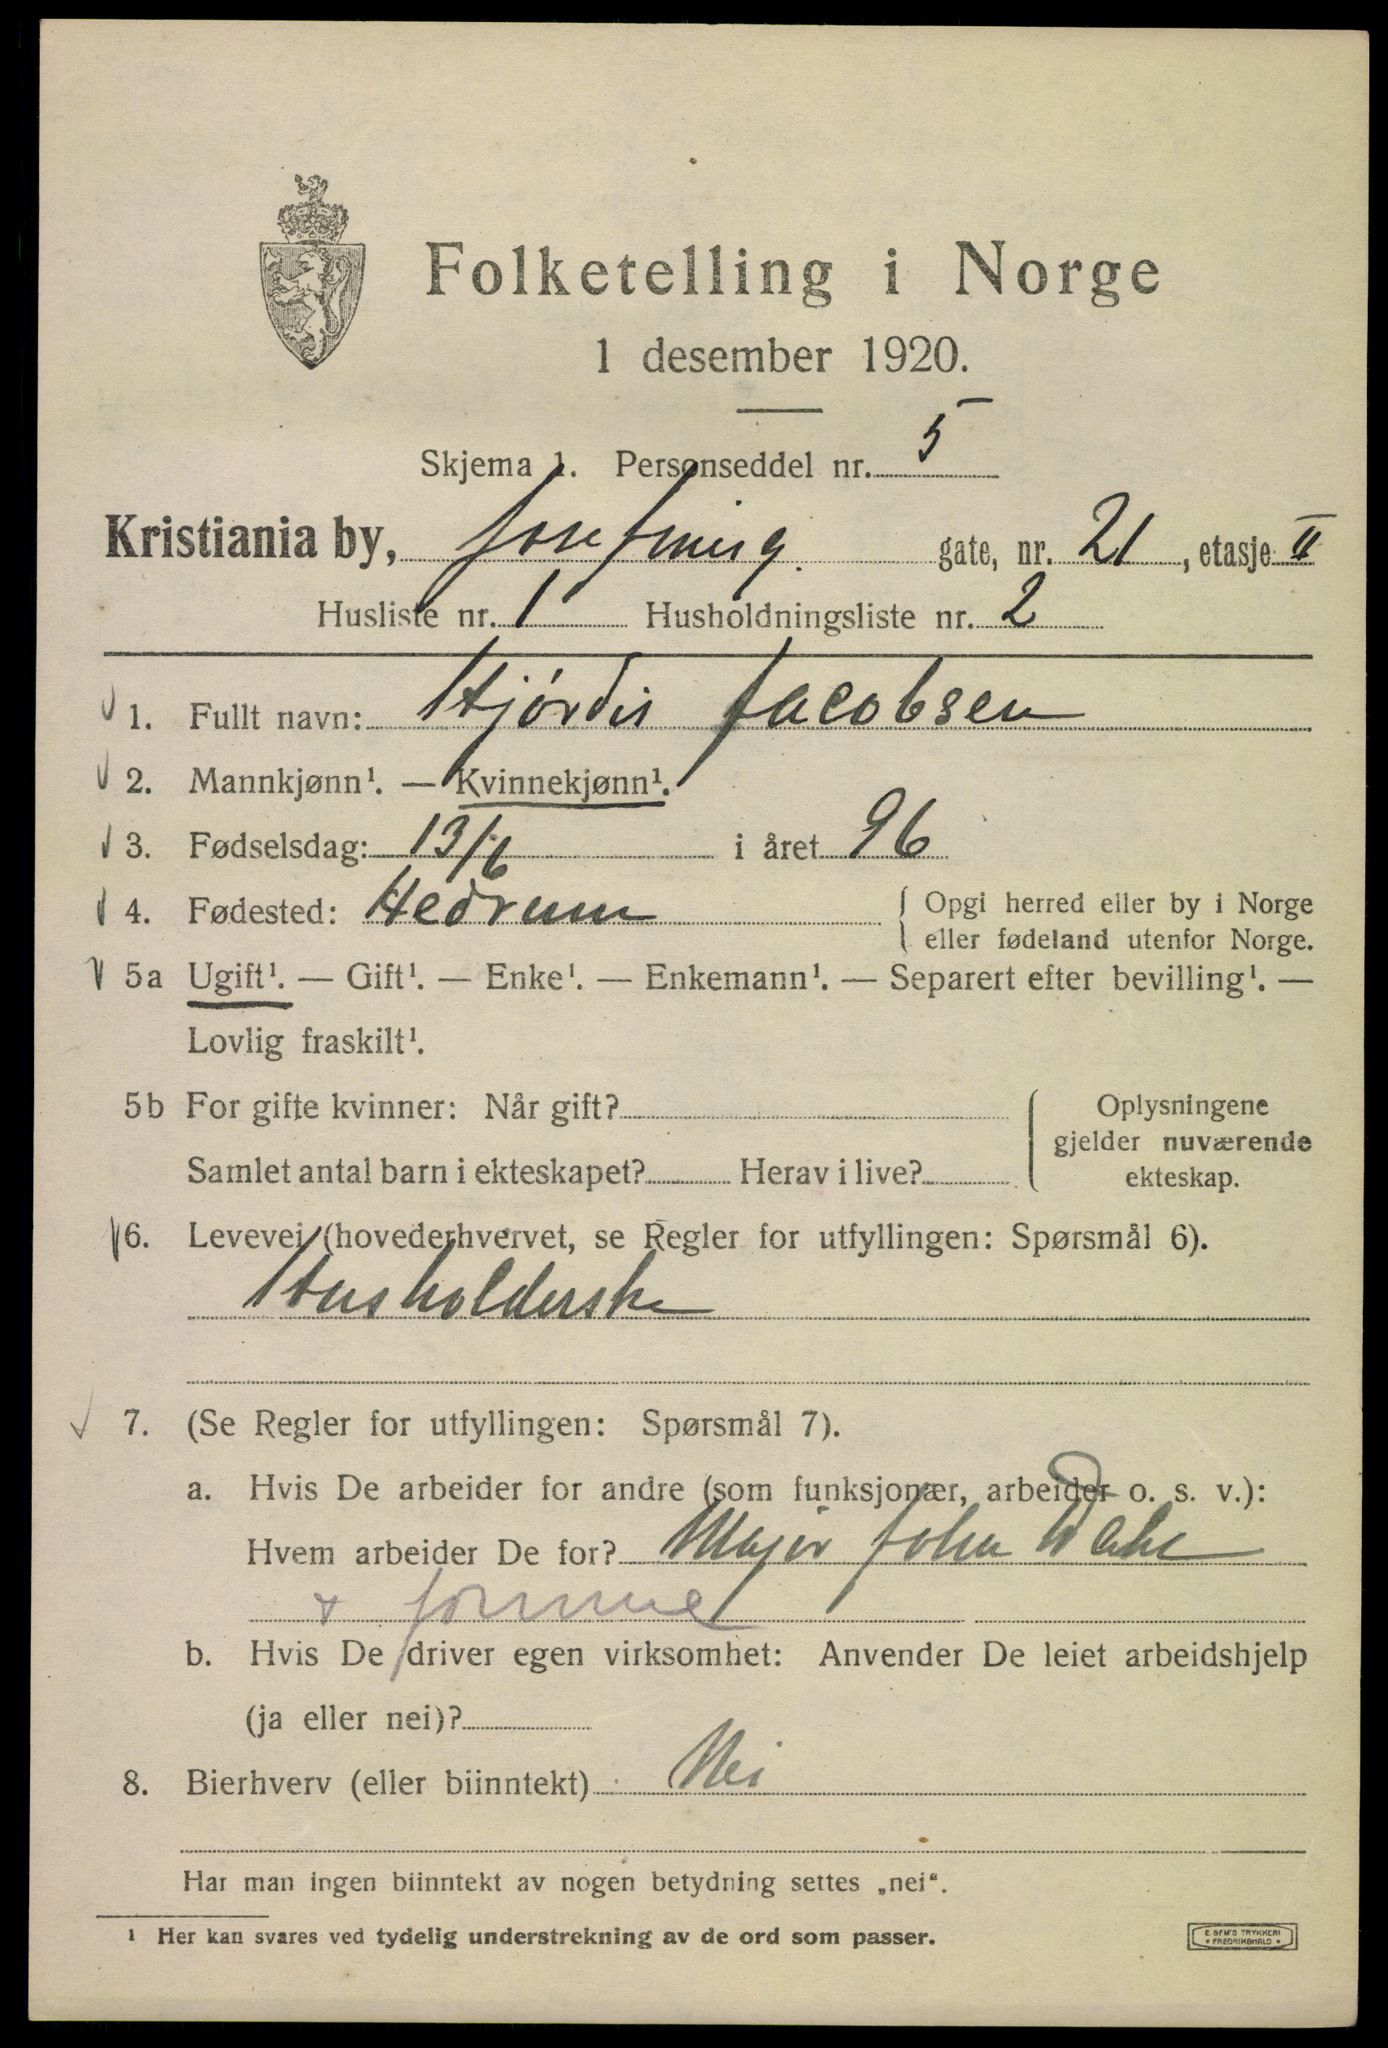 Folketelling i Norge
1 desember 1920.
Skjema 1. Personseddel nr. 5
Kristiania by, Josefinesg. gate, nr. 21, etasje II
Husliste nr. 1 Husholdningsliste nr. 2
1. Fullt navn: Hjørdis Jacobsen
2. Mannkjønn¹. — Kvinnekjønn¹.
3. Fødselsdag: 13/6 i året 96
4. Fødested: Hedrum { Opgi herred eller by i Norge
eller fødeland utenfor Norge.
5a Ugift¹. — Gift¹. — Enke¹. — Enkemann¹. — Separert efter bevilling¹. —
Lovlig fraskilt¹.
5b For gifte kvinner: Når gift?
Samlet antal barn i ekteskapet? Herav i live?
Oplysningene
gjelder nuværende
ekteskap.
6. Levevei (hovederhvervet, se Regler for utfyllingen: Spørsmål 6).
Husholderske
7. (Se Regler for utfyllingen: Spørsmål 7).
a. Hvis De arbeider for andre (som funksjonær, arbeider o. s. v.):
Hvem arbeider De for? Major John
b. Hvis De driver egen virksomhet: Anvender De leiet arbeidshjelp
(ja eller nei)?
8. Bierhverv (eller biinntekt) Nei
Har man ingen biinntekt av nogen betydning settes „nei“.
¹ Her kan svares ved tydelig understrekning av de ord som passer.
E. SEM'S TRYKKERI
* FREDRIKSHALD *